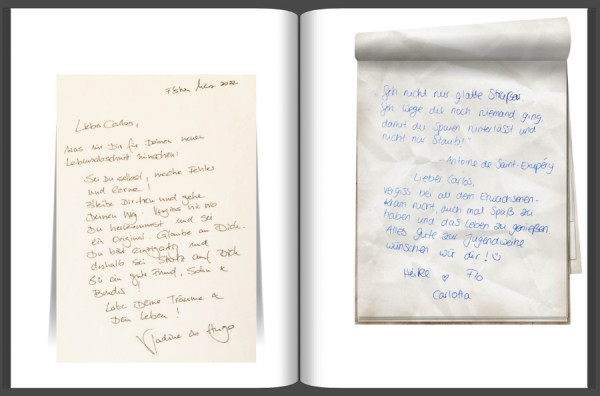 März 2022
Lieber Carlos,
Was wir Dir für Deinen neuen
Lebensabschnitt wünschen:
Sei Du selbst, mache Fehler
und lerne!
Bleibe Dir treu und gehe
Deinen Weg. Vergiss nie wo
Du herkommst und sei
ein Original. Glaube an Dich.
Du bist einzigartig und
deshalb sei Stolz auf Dich
Sei ein guter Freund, Sohn &
Bruder!
Lebe Deine Träume &
Dein Leben!
Nadine
"Geh nicht nur glatte Straßen
Geh Wege, die noch niemand ging,
damit du Spuren hinterlässt und
nicht nur Staub!"
- Antoine de Saint-Exupéry
Lieber Carlos,
vergiss bei all dem Erwachsenen-
kram nicht, auch mal Spaß zu
haben und das Leben zu genießen
Alles Gute zur Jugendweihe
wünschen wir dir!
Heike Flo
Carlotta